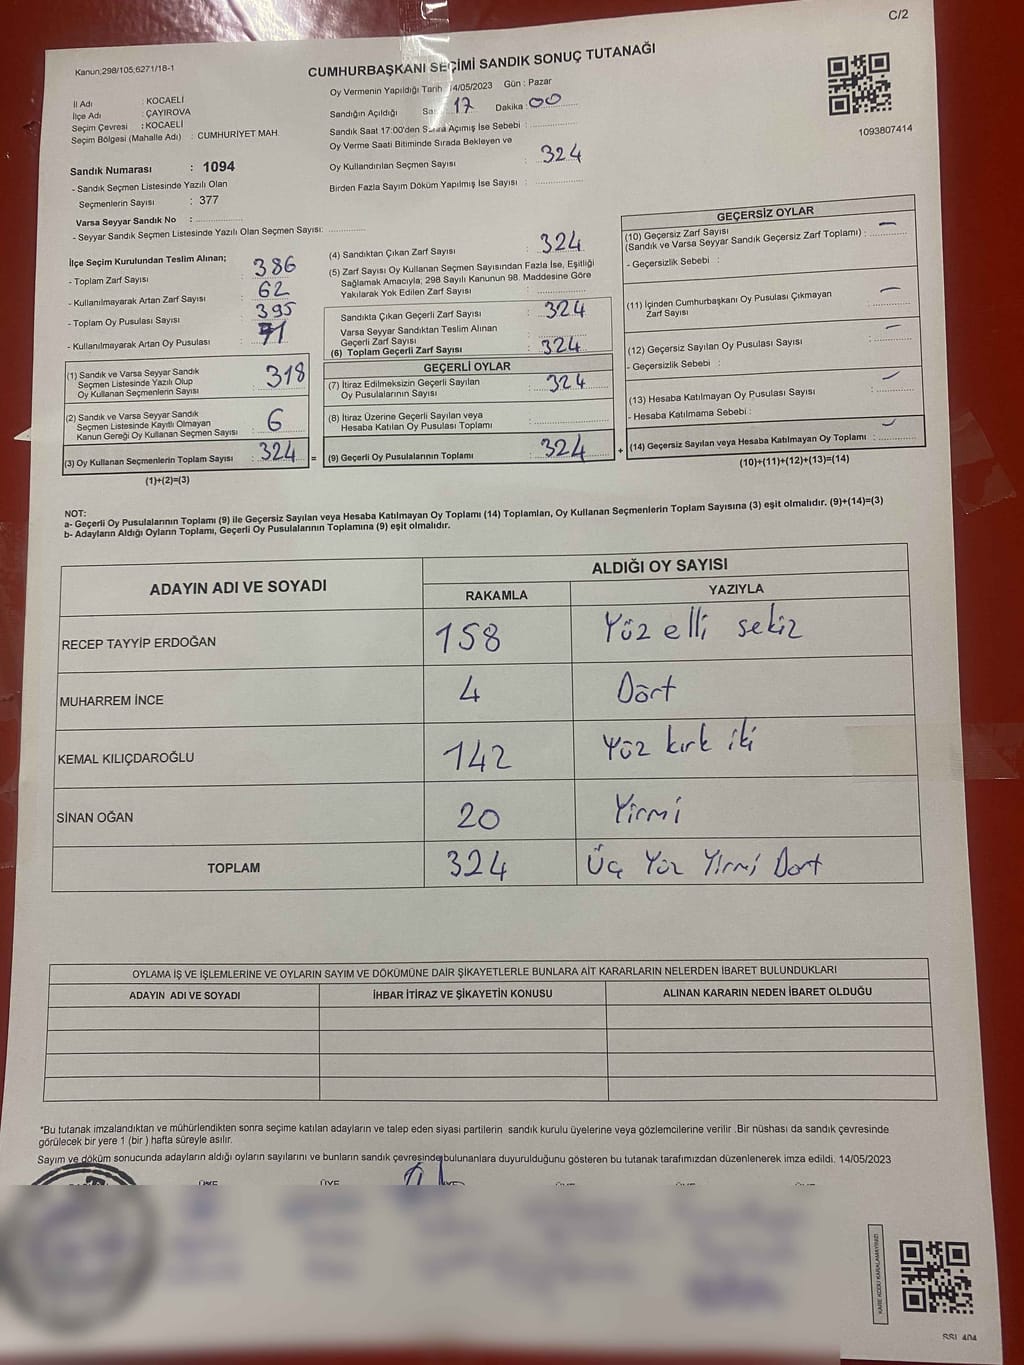 C/2
Kanun;298/105;6271/18-1
CUMHURBAŞKANI SEÇİMİ SANDIK SONUÇ TUTANAĞI
1093807414
İl Adı : KOCAELİ
İlçe Adı : ÇAYIROVA
Seçim Çevresi : KOCAELİ
Seçim Bölgesi (Mahalle Adı) : CUMHURİYET MAH.
Oy Vermenin Yapıldığı Tarih 14/05/2023 Gün : Pazar
Sandığın Açıldığı Saat 17 Dakika : 00
Sandık Saat 17:00'den Sonra Açımış İse Sebebi :
Oy Verme Saati Bitiminde Sırada Bekleyen ve
Oy Kullandırılan Seçmen Sayısı : 324
Birden Fazla Sayım Döküm Yapılmış İse Sayısı :
Sandık Numarası : 1094
- Sandık Seçmen Listesinde Yazılı Olan
Seçmenlerin Sayısı : 377
Varsa Seyyar Sandık No :
- Seyyar Sandık Seçmen Listesinde Yazılı Olan Seçmen Sayısı:
İlçe Seçim Kurulundan Teslim Alınan;
- Toplam Zarf Sayısı : 386
- Kullanılmayarak Artan Zarf Sayısı : 62
- Toplam Oy Pusulası Sayısı : 395
- Kullanılmayarak Artan Oy Pusulası : 71
(1) Sandık ve Varsa Seyyar Sandık
Seçmen Listesinde Yazılı Olup
Oy Kullanan Seçmenlerin Sayısı : 318
(2) Sandık ve Varsa Seyyar Sandık
Seçmen Listesinde Kayıtlı Olmayan
Kanun Gereği Oy Kullanan Seçmen Sayısı : 6
(3) Oy Kullanan Seçmenlerin Toplam Sayısı : 324
(1)+(2)=(3)
=
(4) Sandıktan Çıkan Zarf Sayısı : 324
(5) Zarf Sayısı Oy Kullanan Seçmen Sayısından Fazla İse, Eşitliği
Sağlamak Amacıyla; 298 Sayılı Kanunun 98. Maddesine Göre
Yakılarak Yok Edilen Zarf Sayısı :
Sandıkta Çıkan Geçerli Zarf Sayısı : 324
Varsa Seyyar Sandıktan Teslim Alınan
Geçerli Zarf Sayısı :
(6) Toplam Geçerli Zarf Sayısı : 324
GEÇERLİ OYLAR
(7) İtiraz Edilmeksizin Geçerli Sayılan
Oy Pusulalarının Sayısı : 324
(8) İtiraz Üzerine Geçerli Sayılan veya
Hesaba Katılan Oy Pusulası Toplamı :
(9) Geçerli Oy Pusulalarının Toplamı : 324
+
GEÇERSİZ OYLAR
(10) Geçersiz Zarf Sayısı
(Sandık ve Varsa Seyyar Sandık Geçersiz Zarf Toplamı) : —
- Geçersizlik Sebebi :
(11) İçinden Cumhurbaşkanı Oy Pusulası Çıkmayan
Zarf Sayısı : —
(12) Geçersiz Sayılan Oy Pusulası Sayısı : —
- Geçersizlik Sebebi :
(13) Hesaba Katılmayan Oy Pusulası Sayısı : —
- Hesaba Katılmama Sebebi :
(14) Geçersiz Sayılan veya Hesaba Katılmayan Oy Toplamı : —
(10)+(11)+(12)+(13)=(14)
NOT:
a- Geçerli Oy Pusulalarının Toplamı (9) ile Geçersiz Sayılan veya Hesaba Katılmayan Oy Toplamı (14) Toplamları, Oy Kullanan Seçmenlerin Toplam Sayısına (3) eşit olmalıdır. (9)+(14)=(3)
b- Adayların Aldığı Oyların Toplamı, Geçerli Oy Pusulalarının Toplamına (9) eşit olmalıdır.
ADAYIN ADI VE SOYADI ALDIĞI OY SAYISI
RAKAMLA YAZIYLA
RECEP TAYYİP ERDOĞAN 158 Yüz elli sekiz
MUHARREM İNCE 4 Dört
KEMAL KILIÇDAROĞLU 142 Yüz kırk iki
SİNAN OĞAN 20 Yirmi
TOPLAM 324 Üç Yüz Yirmi Dört
OYLAMA İŞ VE İŞLEMLERİNE VE OYLARIN SAYIM VE DÖKÜMÜNE DAİR ŞİKAYETLERLE BUNLARA AİT KARARLARIN NELERDEN İBARET BULUNDUKLARI
ADAYIN ADI VE SOYADI İHBAR İTİRAZ VE ŞİKAYETİN KONUSU ALINAN KARARIN NEDEN İBARET OLDUĞU
*Bu tutanak imzalandıktan ve mühürlendikten sonra seçime katılan adayların ve talep eden siyasi partilerin sandık kurulu üyelerine veya gözlemcilerine verilir .Bir nüshası da sandık çevresinde
görülecek bir yere 1 (bir ) hafta süreyle asılır.
Sayım ve döküm sonucunda adayların aldığı oyların sayılarını ve bunların sandık çevresinde bulunanlara duyurulduğunu gösteren bu tutanak tarafımızdan düzenlenerek imza edildi. 14/05/2023
ÜYE ÜYE
KARE KODU KARALAMAYINIZ!